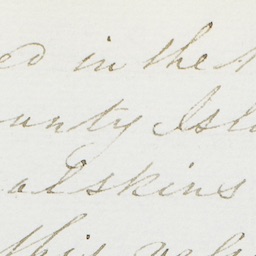 ed in the
ounty Isl
alskins
this